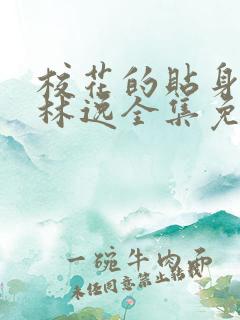 校花的贴身
林逸全集免
一碗牛肉面
未经同意禁止转载